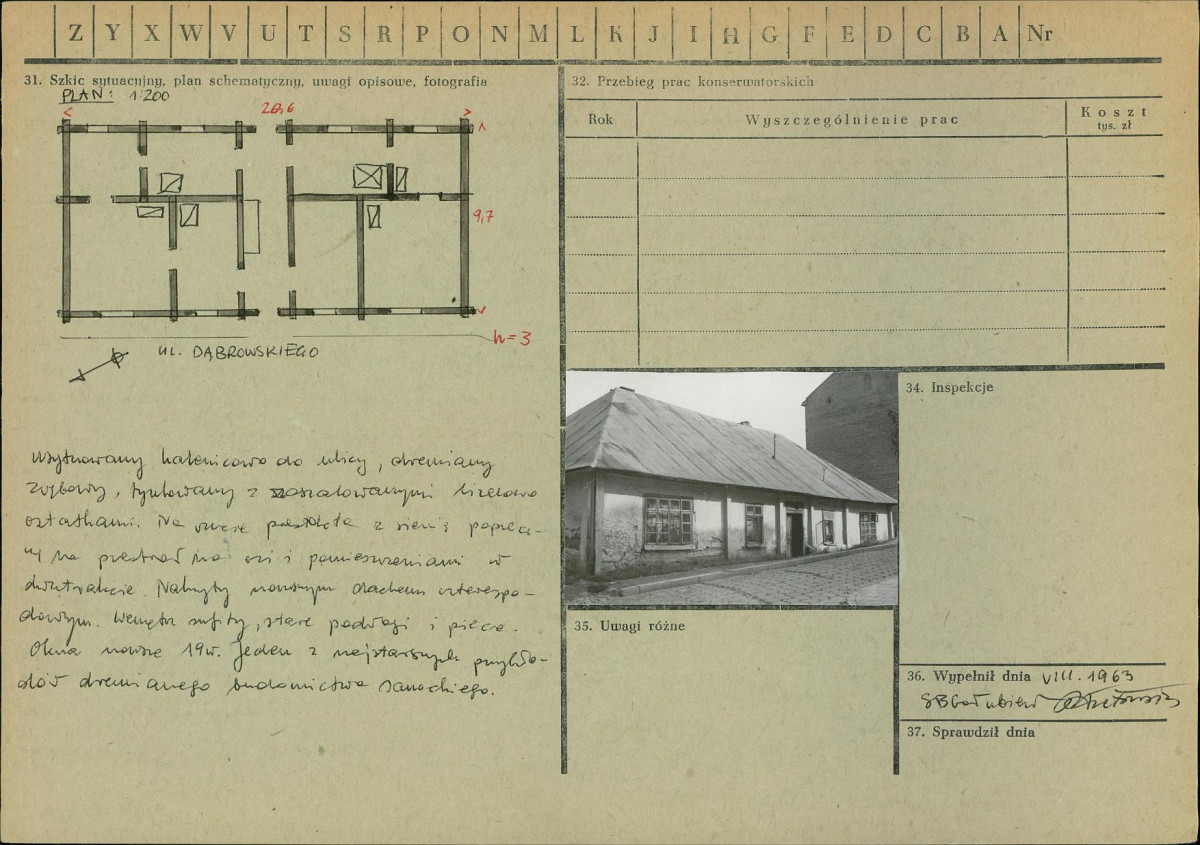 Z Y X W V U T S R P O N M L K J I H G F E D C B A Nr
31. Szkic sytuacyjny, plan schematyczny, uwagi opisowe, fotografia
PLAN: 1:200
20,6
9,7
h=3
UL. DĄBROWSKIEGO
Usytuowany kalenicowo do ulicy, drewniany
zrębowy, tynkowany z
ostatkami. Na rzucie prostokąta z sienią
na przestrzał na osi i pomieszczeniami w
dwutrakcie. Nakryty nowszym dachem czterospa-
dowym. Wewnątrz sufity, stare podłogi i piece.
Okna nowsze 19w. Jeden z najstarszych przykła-
dów drewnianego budownictwa sanockiego.
32. Przebieg prac konserwatorskich
Rok
Wyszczególnienie prac
Koszt
tys. zł
34. Inspekcje
35. Uwagi różne
36. Wypełnił dnia VIII. 1963
37. Sprawdził dnia